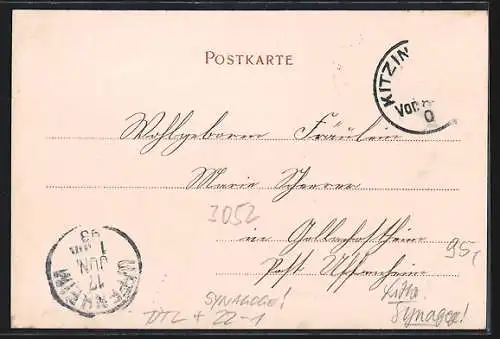 POSTKARTE
KITZIN
Vor
Wohlgeboren Fräulein
Marie Scherrer
3052
in Gollhofstheim
95,-
Post Uffenheim
UFFENHEIM
17
JUN
1
03
SYNAGOGE!
Kitta.
Synagoge!
DTL + 22-1